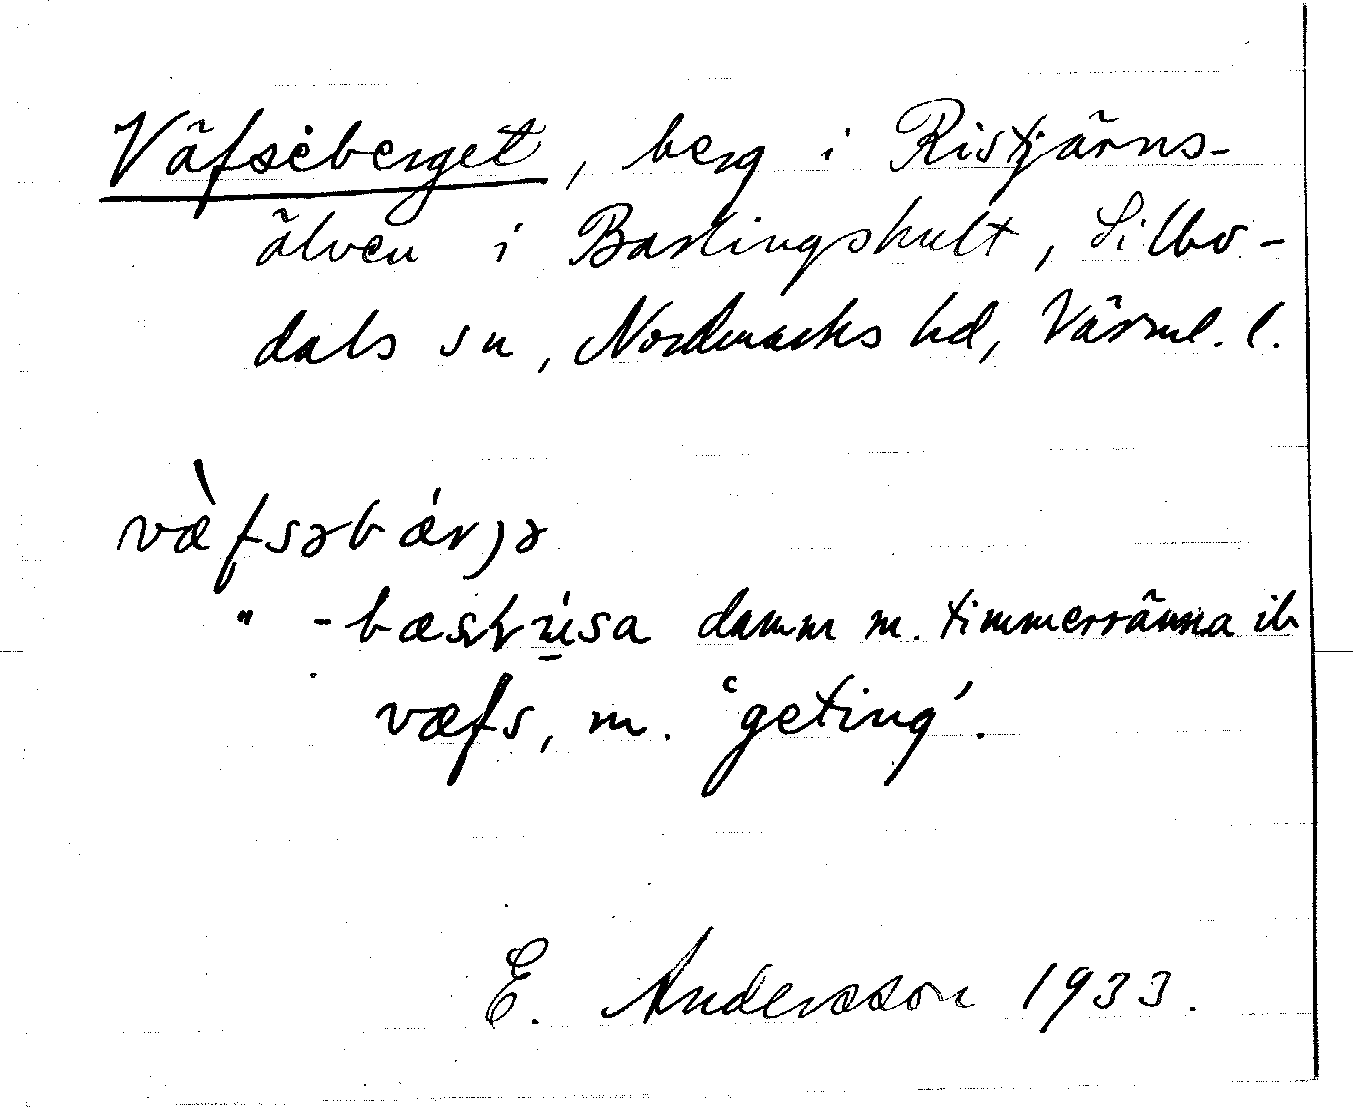 Väfseberget, berg i Ristjärns-
älven i Bastingshult, Silbo-
dals sn, Nordmarks hd, Värml. l.
væ̀fsəbǽrjə
" -bæskúsa damm m. timmerränna ib
væfs, m. 'geting'.
E. Andersson 1933.